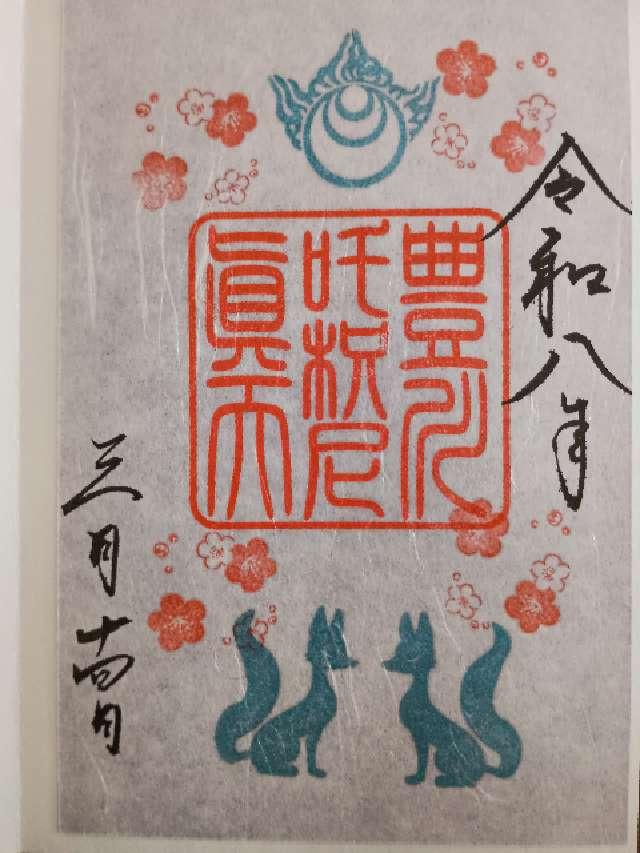 令和八年
豊川
吒枳尼
眞天
三月十四日